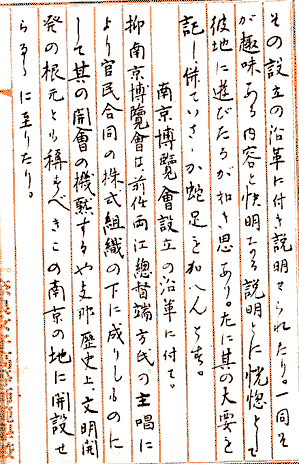 その設立の沿革に付き説明せられたり。一同そ
が趣味ある内容と快明なる説明とに恍惚として
彼地に遊びたるが如き思あり。左に其の大要を
記し併せていさゝか蛇足を加へんとす。
南京博覽會設立の沿革に付て。
抑南京博覽會は前任両江總督端方氏の主唱に
より官民合同の株式組織の下に成りしものに
して其の開會の機熟するや支那歴史上、文明開
発の根元とも稱すべきこの南京の地に開設せ
らるゝに至りたり。